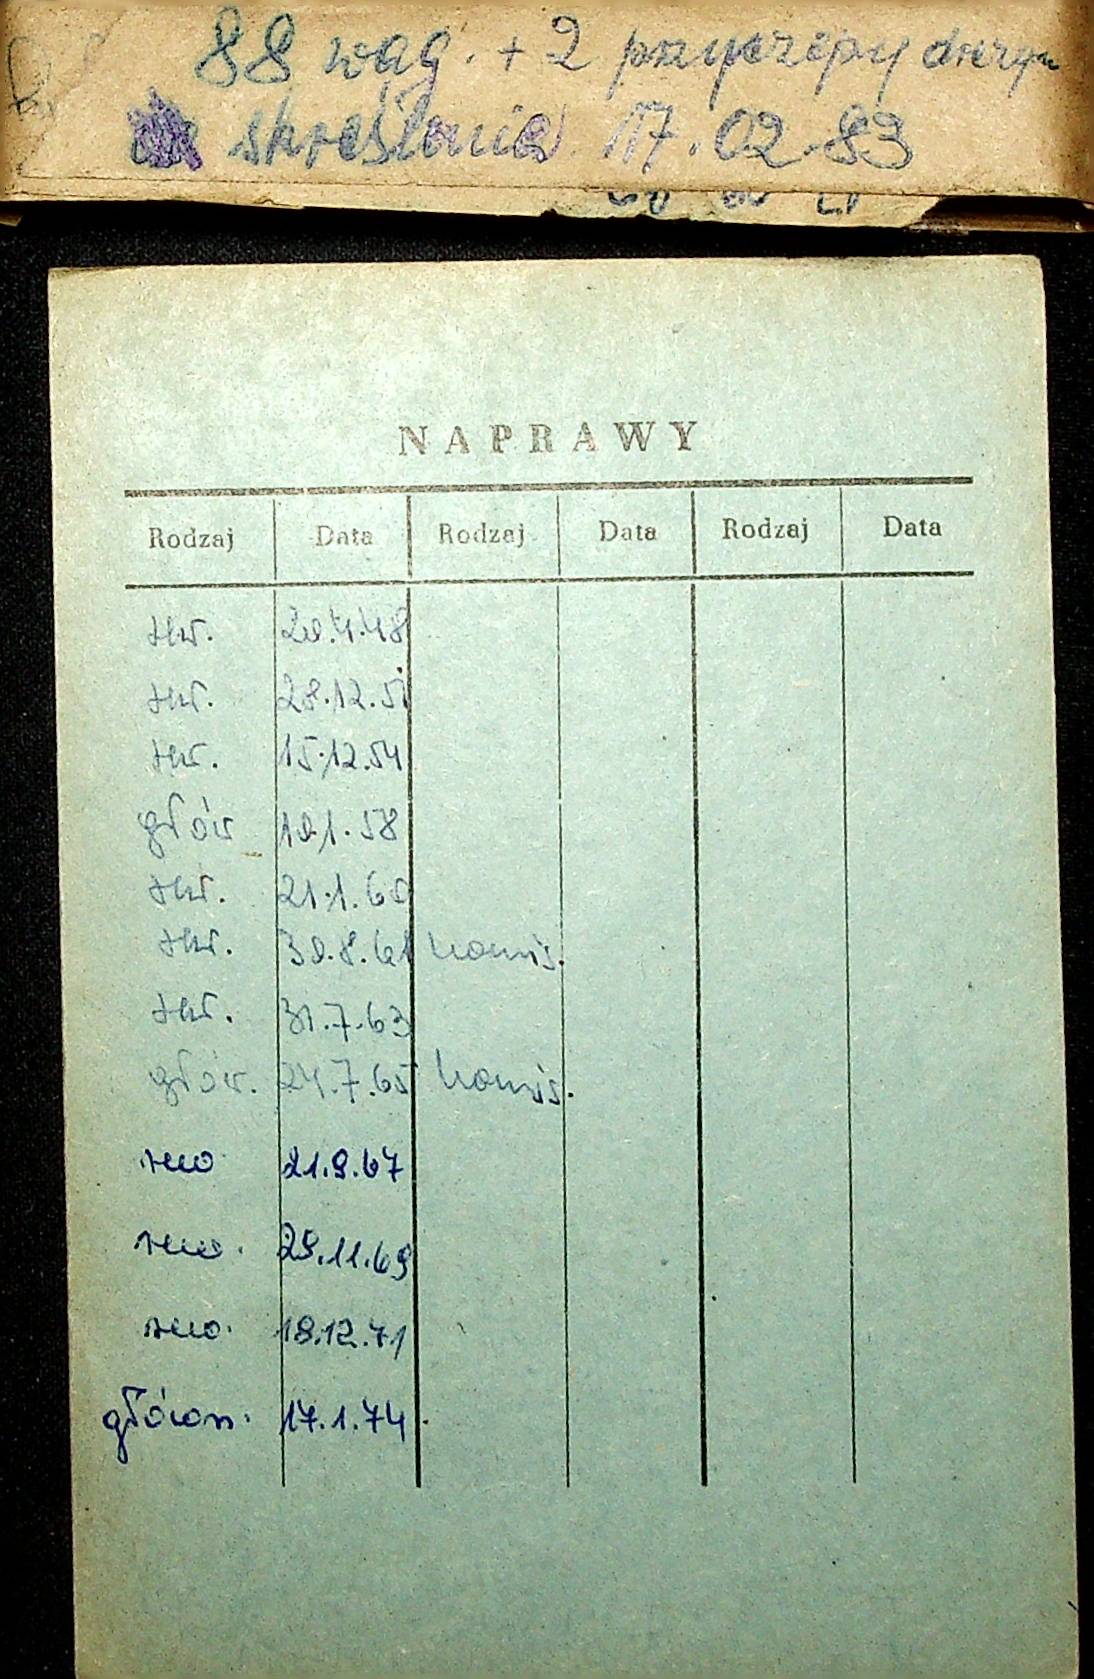 88 wag. + 2 przyczepy
skreślenia 17.02.83
NAPRAWY
Rodzaj Data Rodzaj Data Rodzaj Data
śr. 20.4.48
śr. 28.12.51
śr. 15.12.54
głów 10.1.58
śr. 21.1.60
śr. 30.8.61 komis.
śr. 31.7.63
głów. 24.7.65 komis.
rew. 21.9.67
rew. 29.11.69
rew. 18.12.71
główn. 17.1.74.